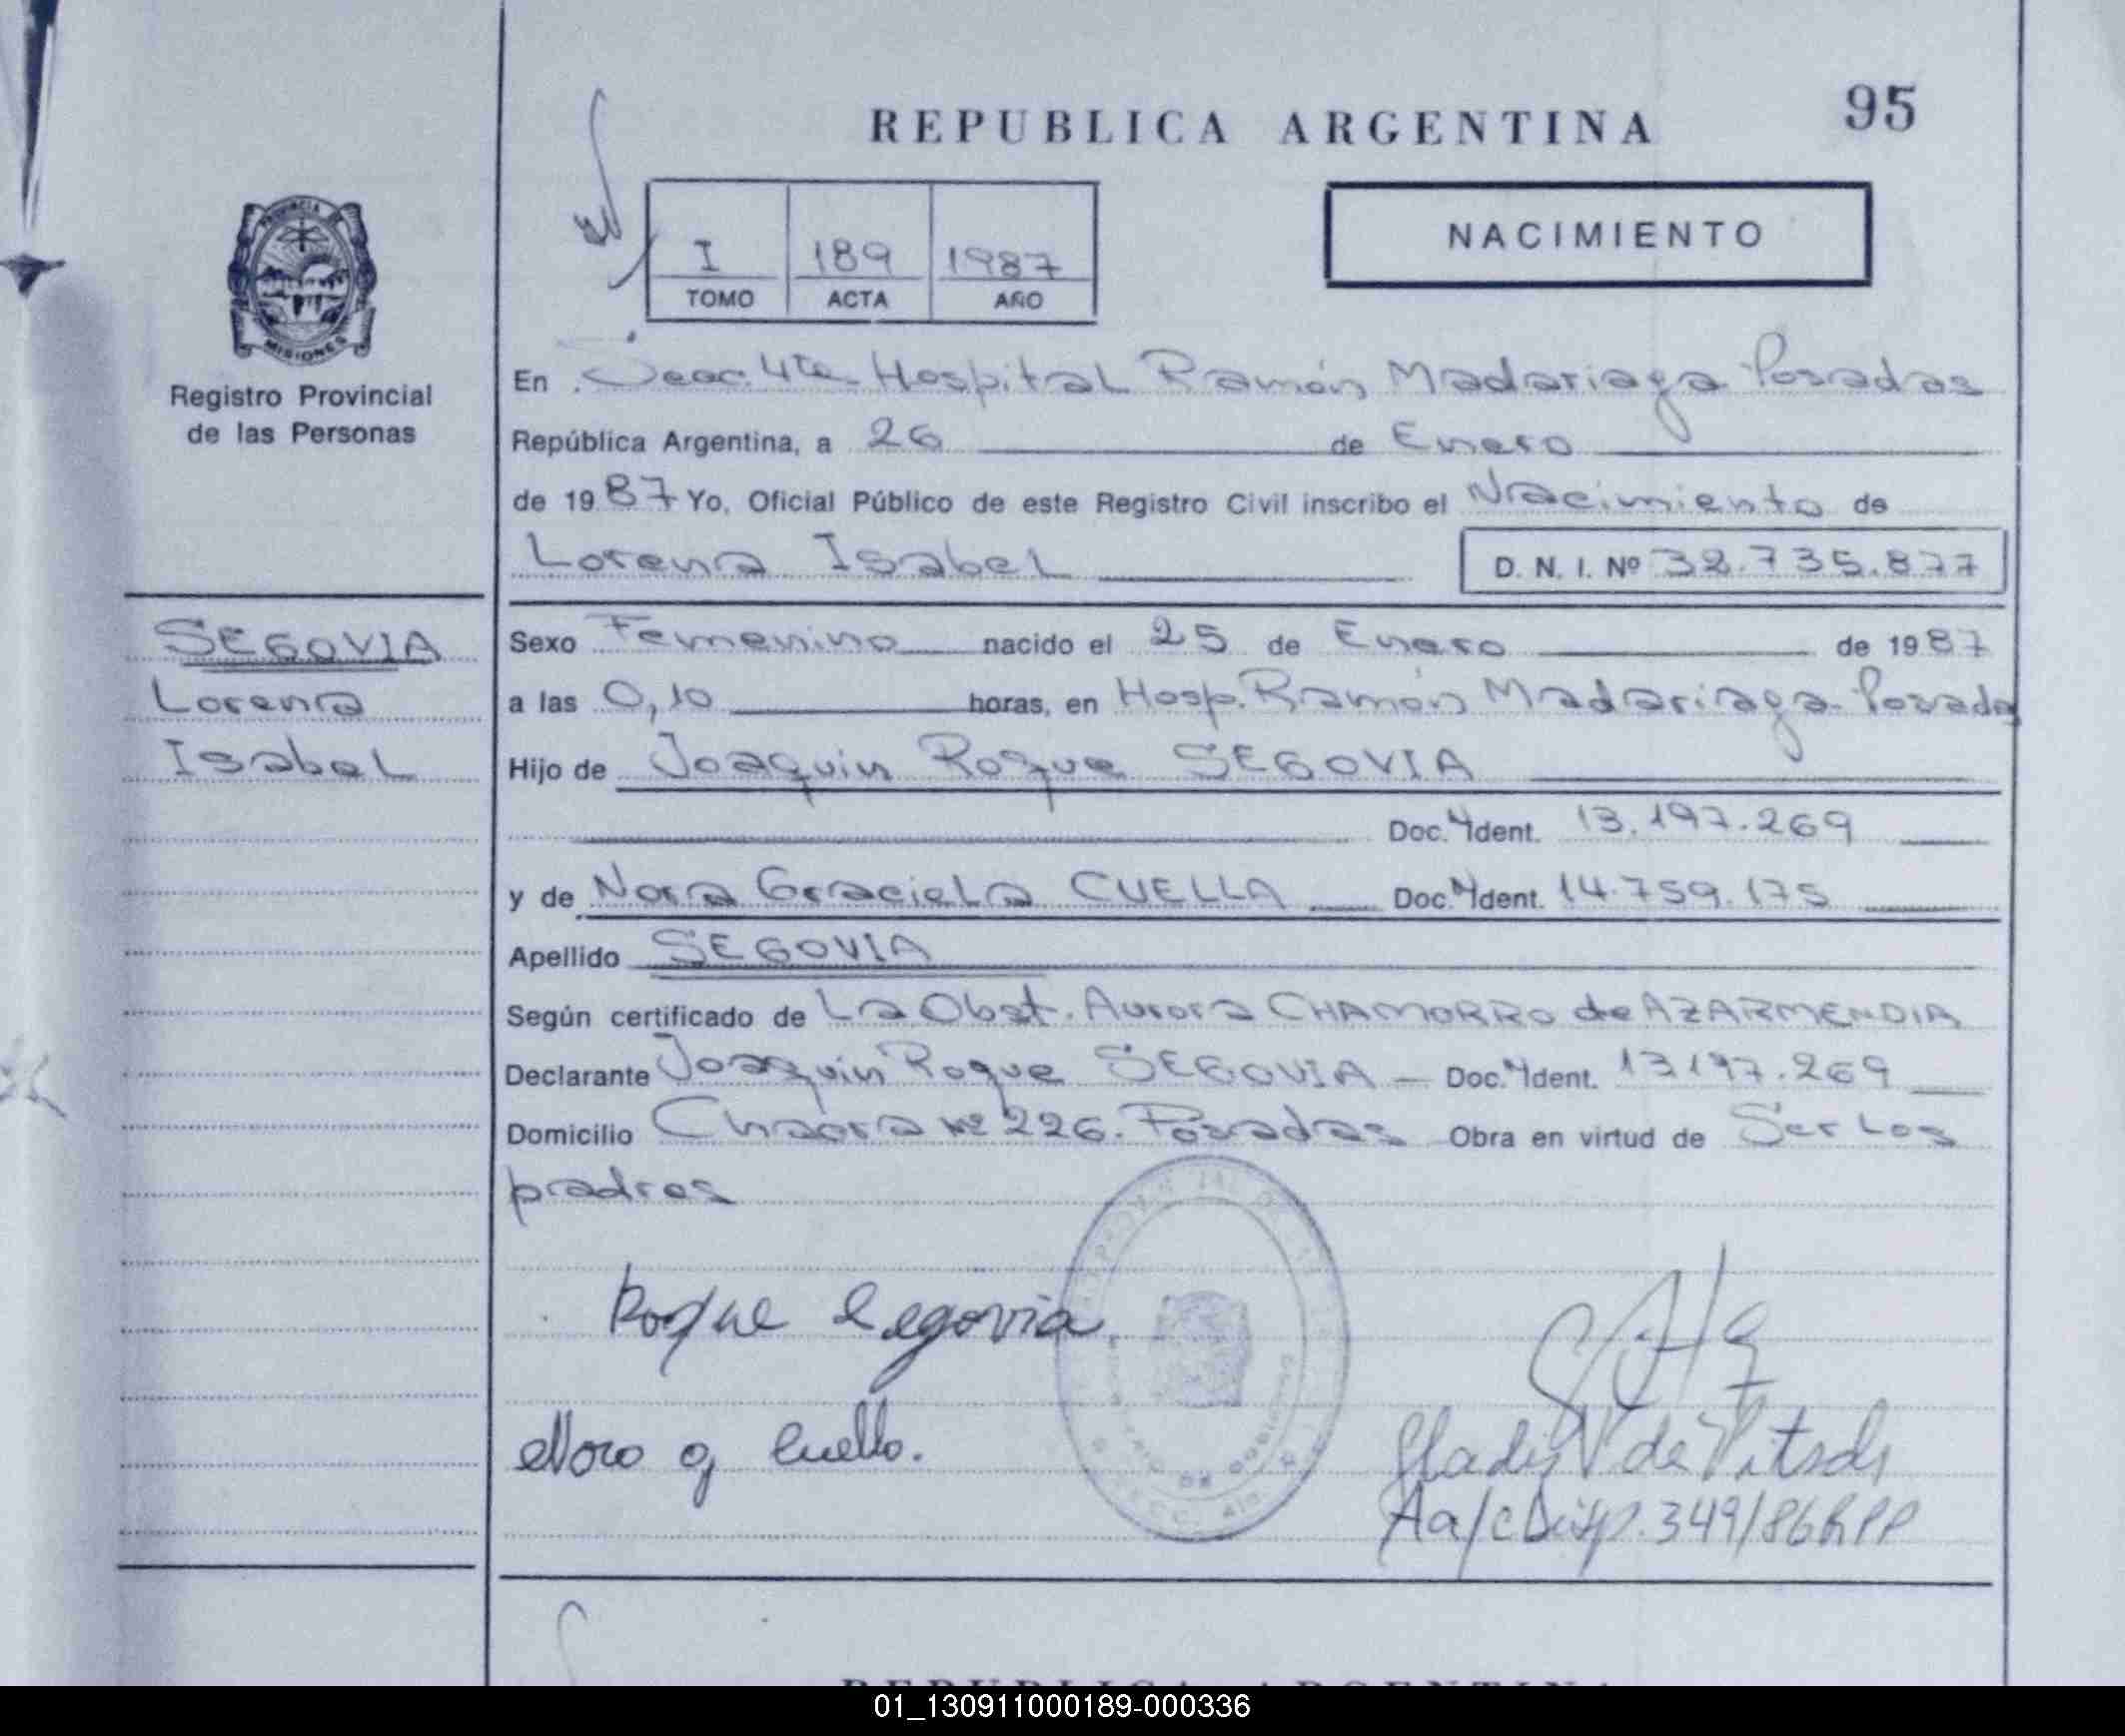 REPUBLICA ARGENTINA
95
PROVINCIA DE
MISIONES
Registro Provincial
de las Personas
I 189 1987
TOMO ACTA AÑO
NACIMIENTO
En Secc. 4ta Hospital Ramón Madariaga Posadas
República Argentina, a 26 de Enero
de 1987 Yo, Oficial Público de este Registro Civil inscribo el Nacimiento de
Lorena Isabel D. N. I. Nº 32.735.877
SEGOVIA
Lorena
Isabel
Sexo Femenino nacido el 25 de Enero de 1987
a las 0,10 horas, en Hosp. Ramón Madariaga Posadas
Hijo de Joaquin Roque SEGOVIA
Doc. Ident. 13.197.269
y de Nora Graciela CUELLA Doc. Ident. 14.759.175
Apellido SEGOVIA
Según certificado de La Obst. Aurora CHAMORRO de AZARMENDIA
Declarante Joaquin Roque SEGOVIA Doc. Ident. 13197.269
Domicilio Chacra Nº 226. Posadas Obra en virtud de Ser Los
padres
Roque Segovia
Nora G Cuella.
Gladis V de
Aa/c Disp. 349/86 RPP
REPUBLICA ARGENTINA
01_130911000189-000336